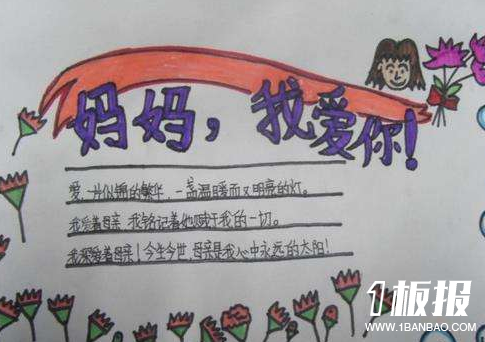 妈妈，我爱你！
爱，一片似锦的繁华，一盏温暖而又明亮的灯。
我爱着母亲，我铭记着她赋于我的一切。
我深爱着母亲！今生今世，母亲是我心中永远的太阳！
1板报
WWW.1BANBAO.COM